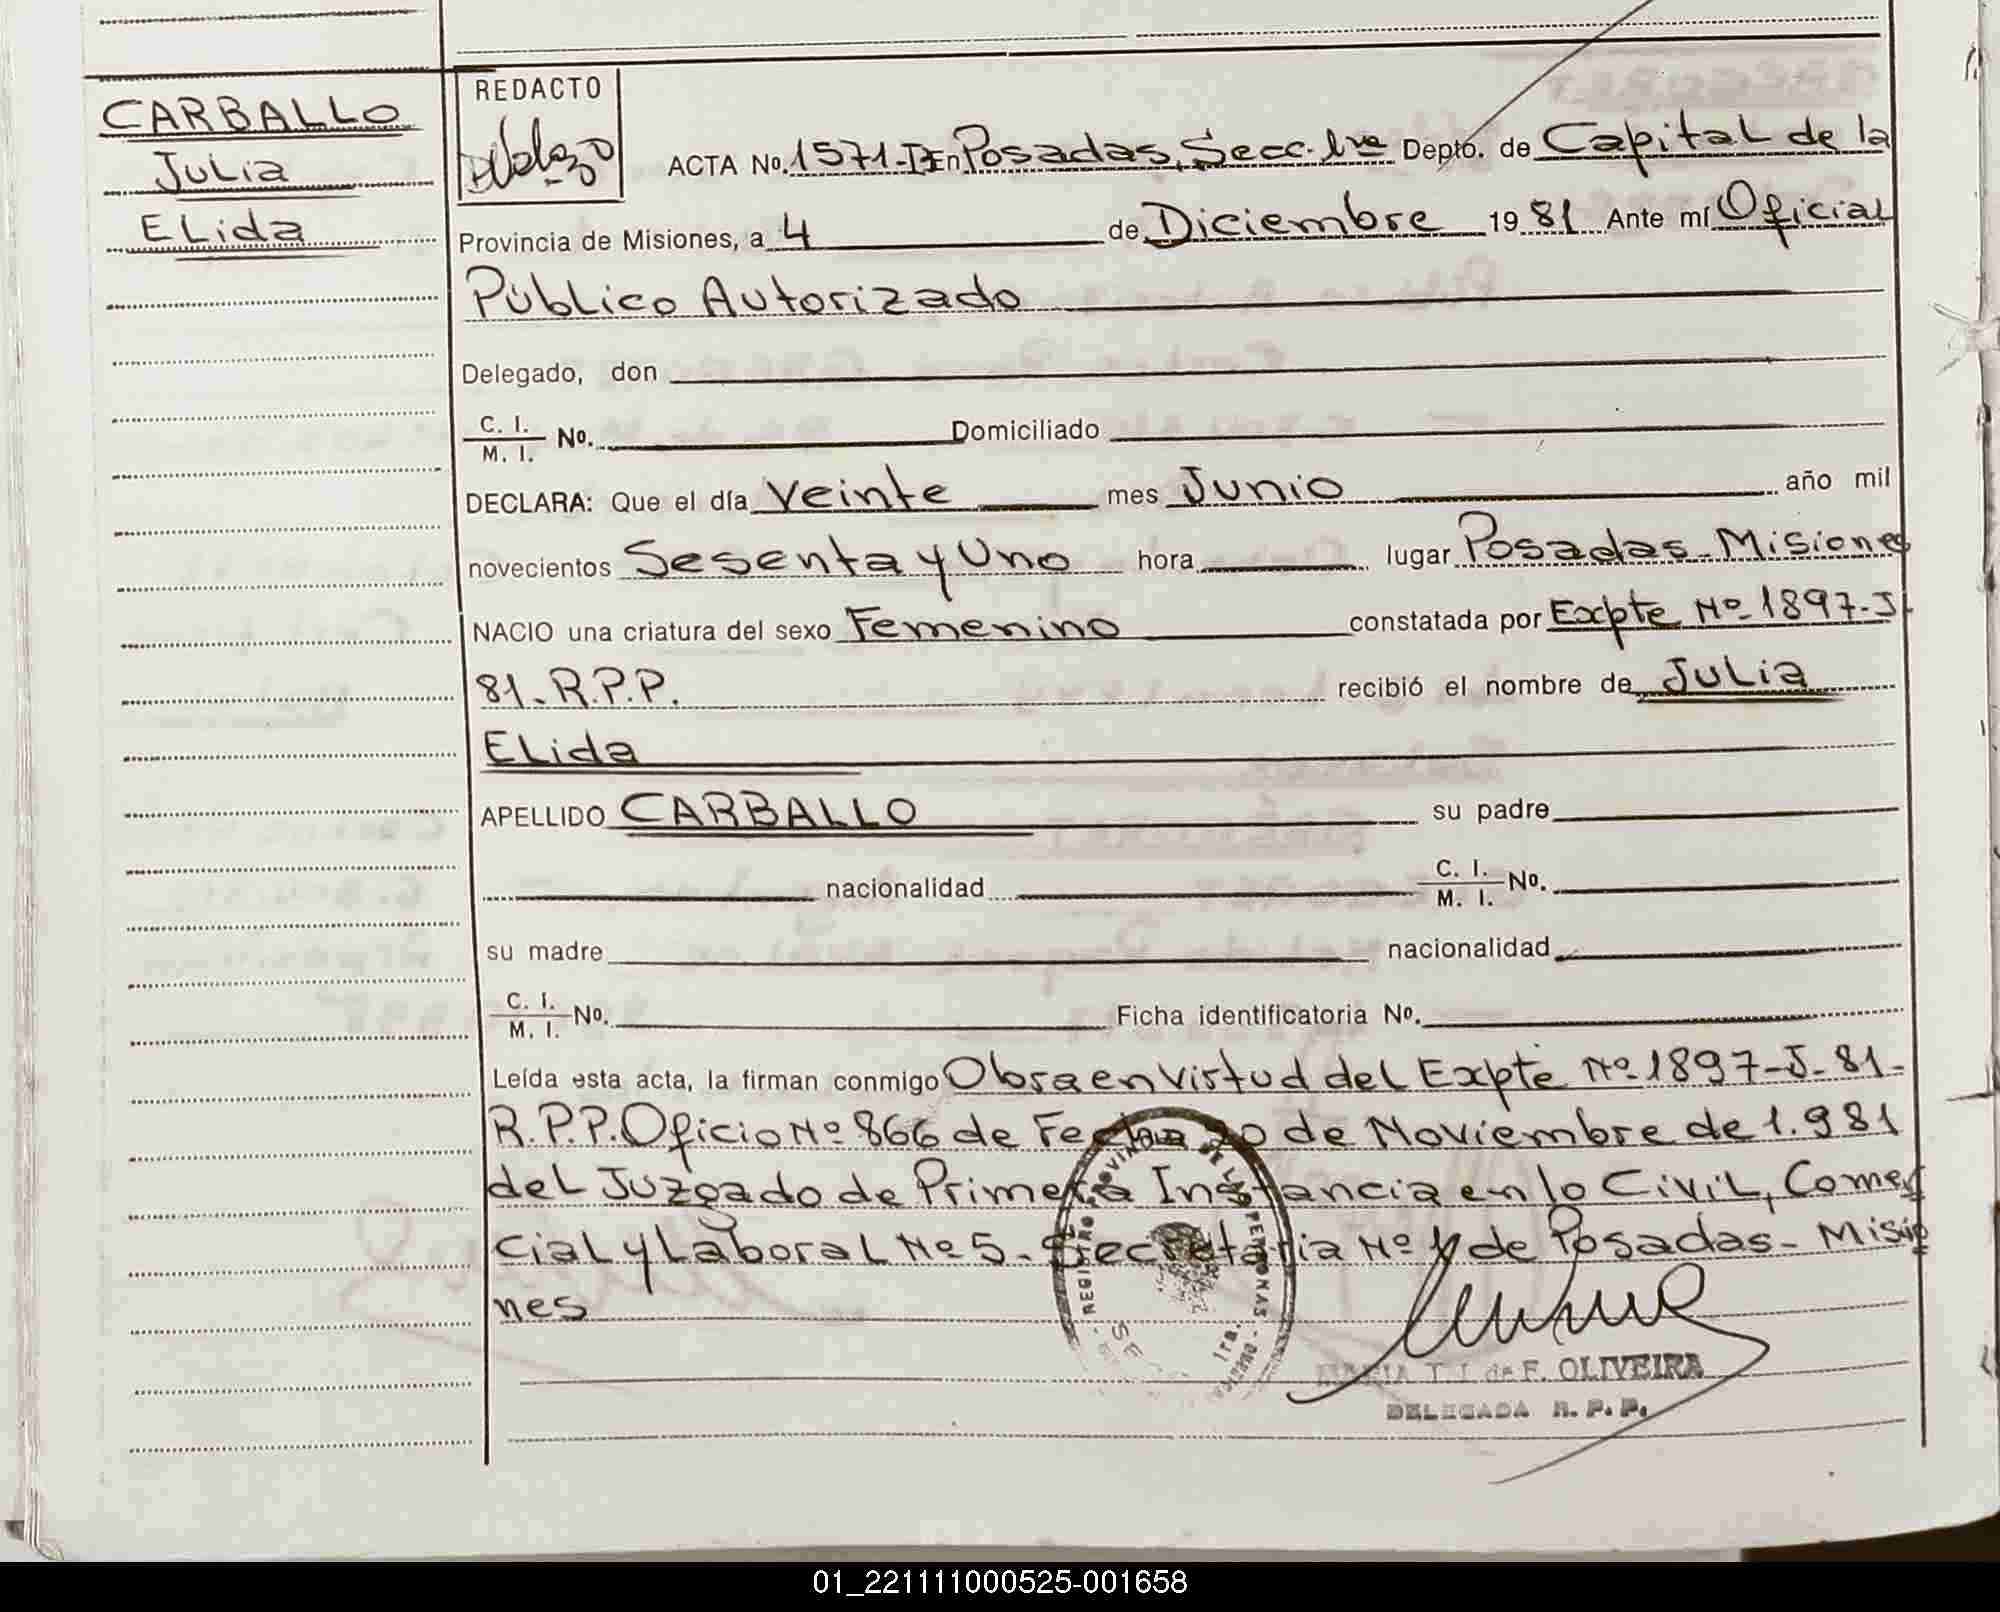 CARBALLO
Julia
Elida
REDACTO
ACTA No. 1571-I En Posadas, Secc. 1ra Depto. de Capital de la
Provincia de Misiones, a 4 de Diciembre 1981 Ante mí Oficial
Público Autorizado
Delegado, don
C. I.
M. I. No. Domiciliado
DECLARA: Que el día Veinte mes Junio año mil
novecientos Sesenta y Uno hora lugar Posadas - Misiones
NACIO una criatura del sexo Femenino constatada por Expte Nº 1897-J-
81-R.P.P. recibió el nombre de Julia
Elida
APELLIDO CARBALLO su padre
nacionalidad C. I.
M. I. No.
su madre nacionalidad
C. I.
M. I. No. Ficha identificatoria No.
Leída esta acta, la firman conmigo Obra en Virtud del Expte Nº 1897-J-81-
R.P.P. Oficio Nº 866 de Fecha 20 de Noviembre de 1.981
del Juzgado de Primera Instancia en lo Civil, Comer
cial y Laboral Nº 5 - Secretaria Nº 1 de Posadas - Misio
nes
REGISTRO PROVINCIAL DE LAS PERSONAS
1ra.
MARIA T. J. de F. OLIVEIRA
DELEGADA R. P. P.
01_221111000525-001658